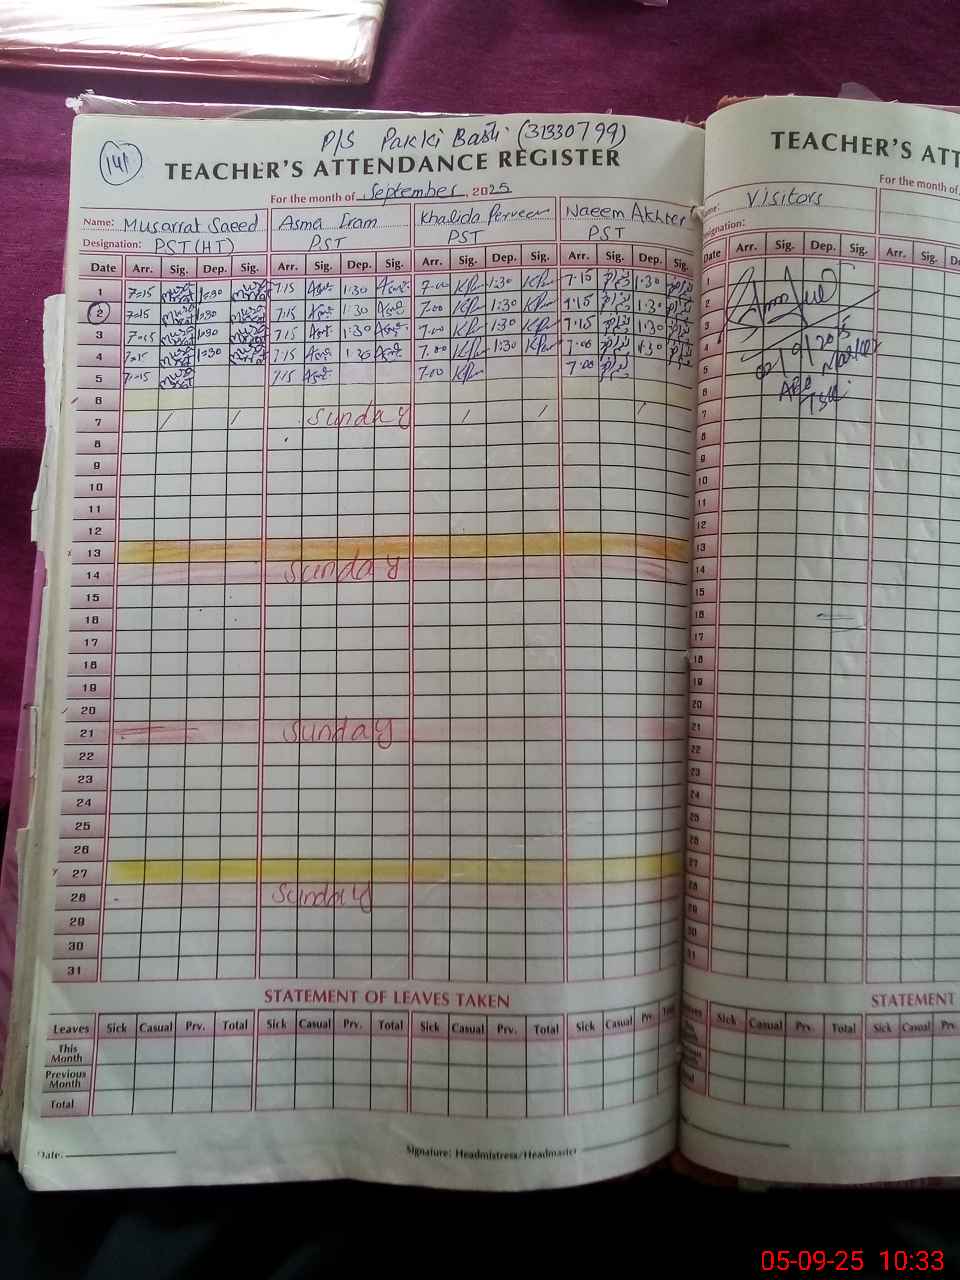 P/S Pakki Basti (31330799)
141
TEACHER'S ATTENDANCE REGISTER
For the month of September, 2025
Name: Musarrat Saeed Asma Iram Khalida Perveen Naeem Akhter
Designation: PST (HT) PST PST PST
Date Arr. Sig. Dep. Sig. Arr. Sig. Dep. Sig. Arr. Sig. Dep. Sig. Arr. Sig. Dep. Sig.
1 7:15 1:30 7:15 1:30 7:00 KPer 1:30 KPer 7:15 1:30
2 7:15 1:30 7:15 1:30 7:00 KPer 1:30 KPer 7:15 1:30
3 7:15 1:30 7:15 1:30 7:00 KPer 1:30 KPer 7:15 1:30
4 7:15 1:30 7:15 1:30 7:00 KPer 1:30 KPer 7:00 1:30
5 7:15 7:15 7:00 KPer 7:00
6
7 Sunday
8
9
10
11
12
13
14 Sunday
15
16
17
18
19
20
21 Sunday
22
23
24
25
26
27
28 Sunday
29
30
31
STATEMENT OF LEAVES TAKEN
Leaves Sick Casual Prv. Total Sick Casual Prv. Total Sick Casual Prv. Total Sick Casual Prv.
This Month
Previous Month
Total
Date:
Signature: Headmistress/Headmaster
TEACHER'S ATT
For the month of
Visitors
Designation:
Date Arr. Sig. Dep. Sig. Arr. Sig.
1
2
3
4
5
6
7
8
9
10
11
12
13
14
15
16
17
18
19
20
21
22
23
24
25
26
27
28
29
30
31
02/9/2025
STATEMENT
Sick Casual Prv. Total Sick Casual Prv.
05-09-25 10:33